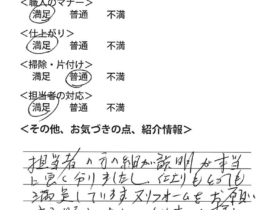 <職人のマナー>
満足 普通 不満
<仕上がり>
満足 普通 不満
<掃除・片付け>
満足 普通 不満
<担当者の対応>
満足 普通 不満
<その他、お気づきの点、紹介情報>
担当者の方の細かい説明が本当
に良く分りましたし、仕上りもとっても
満足しています 又リフォームをお願い